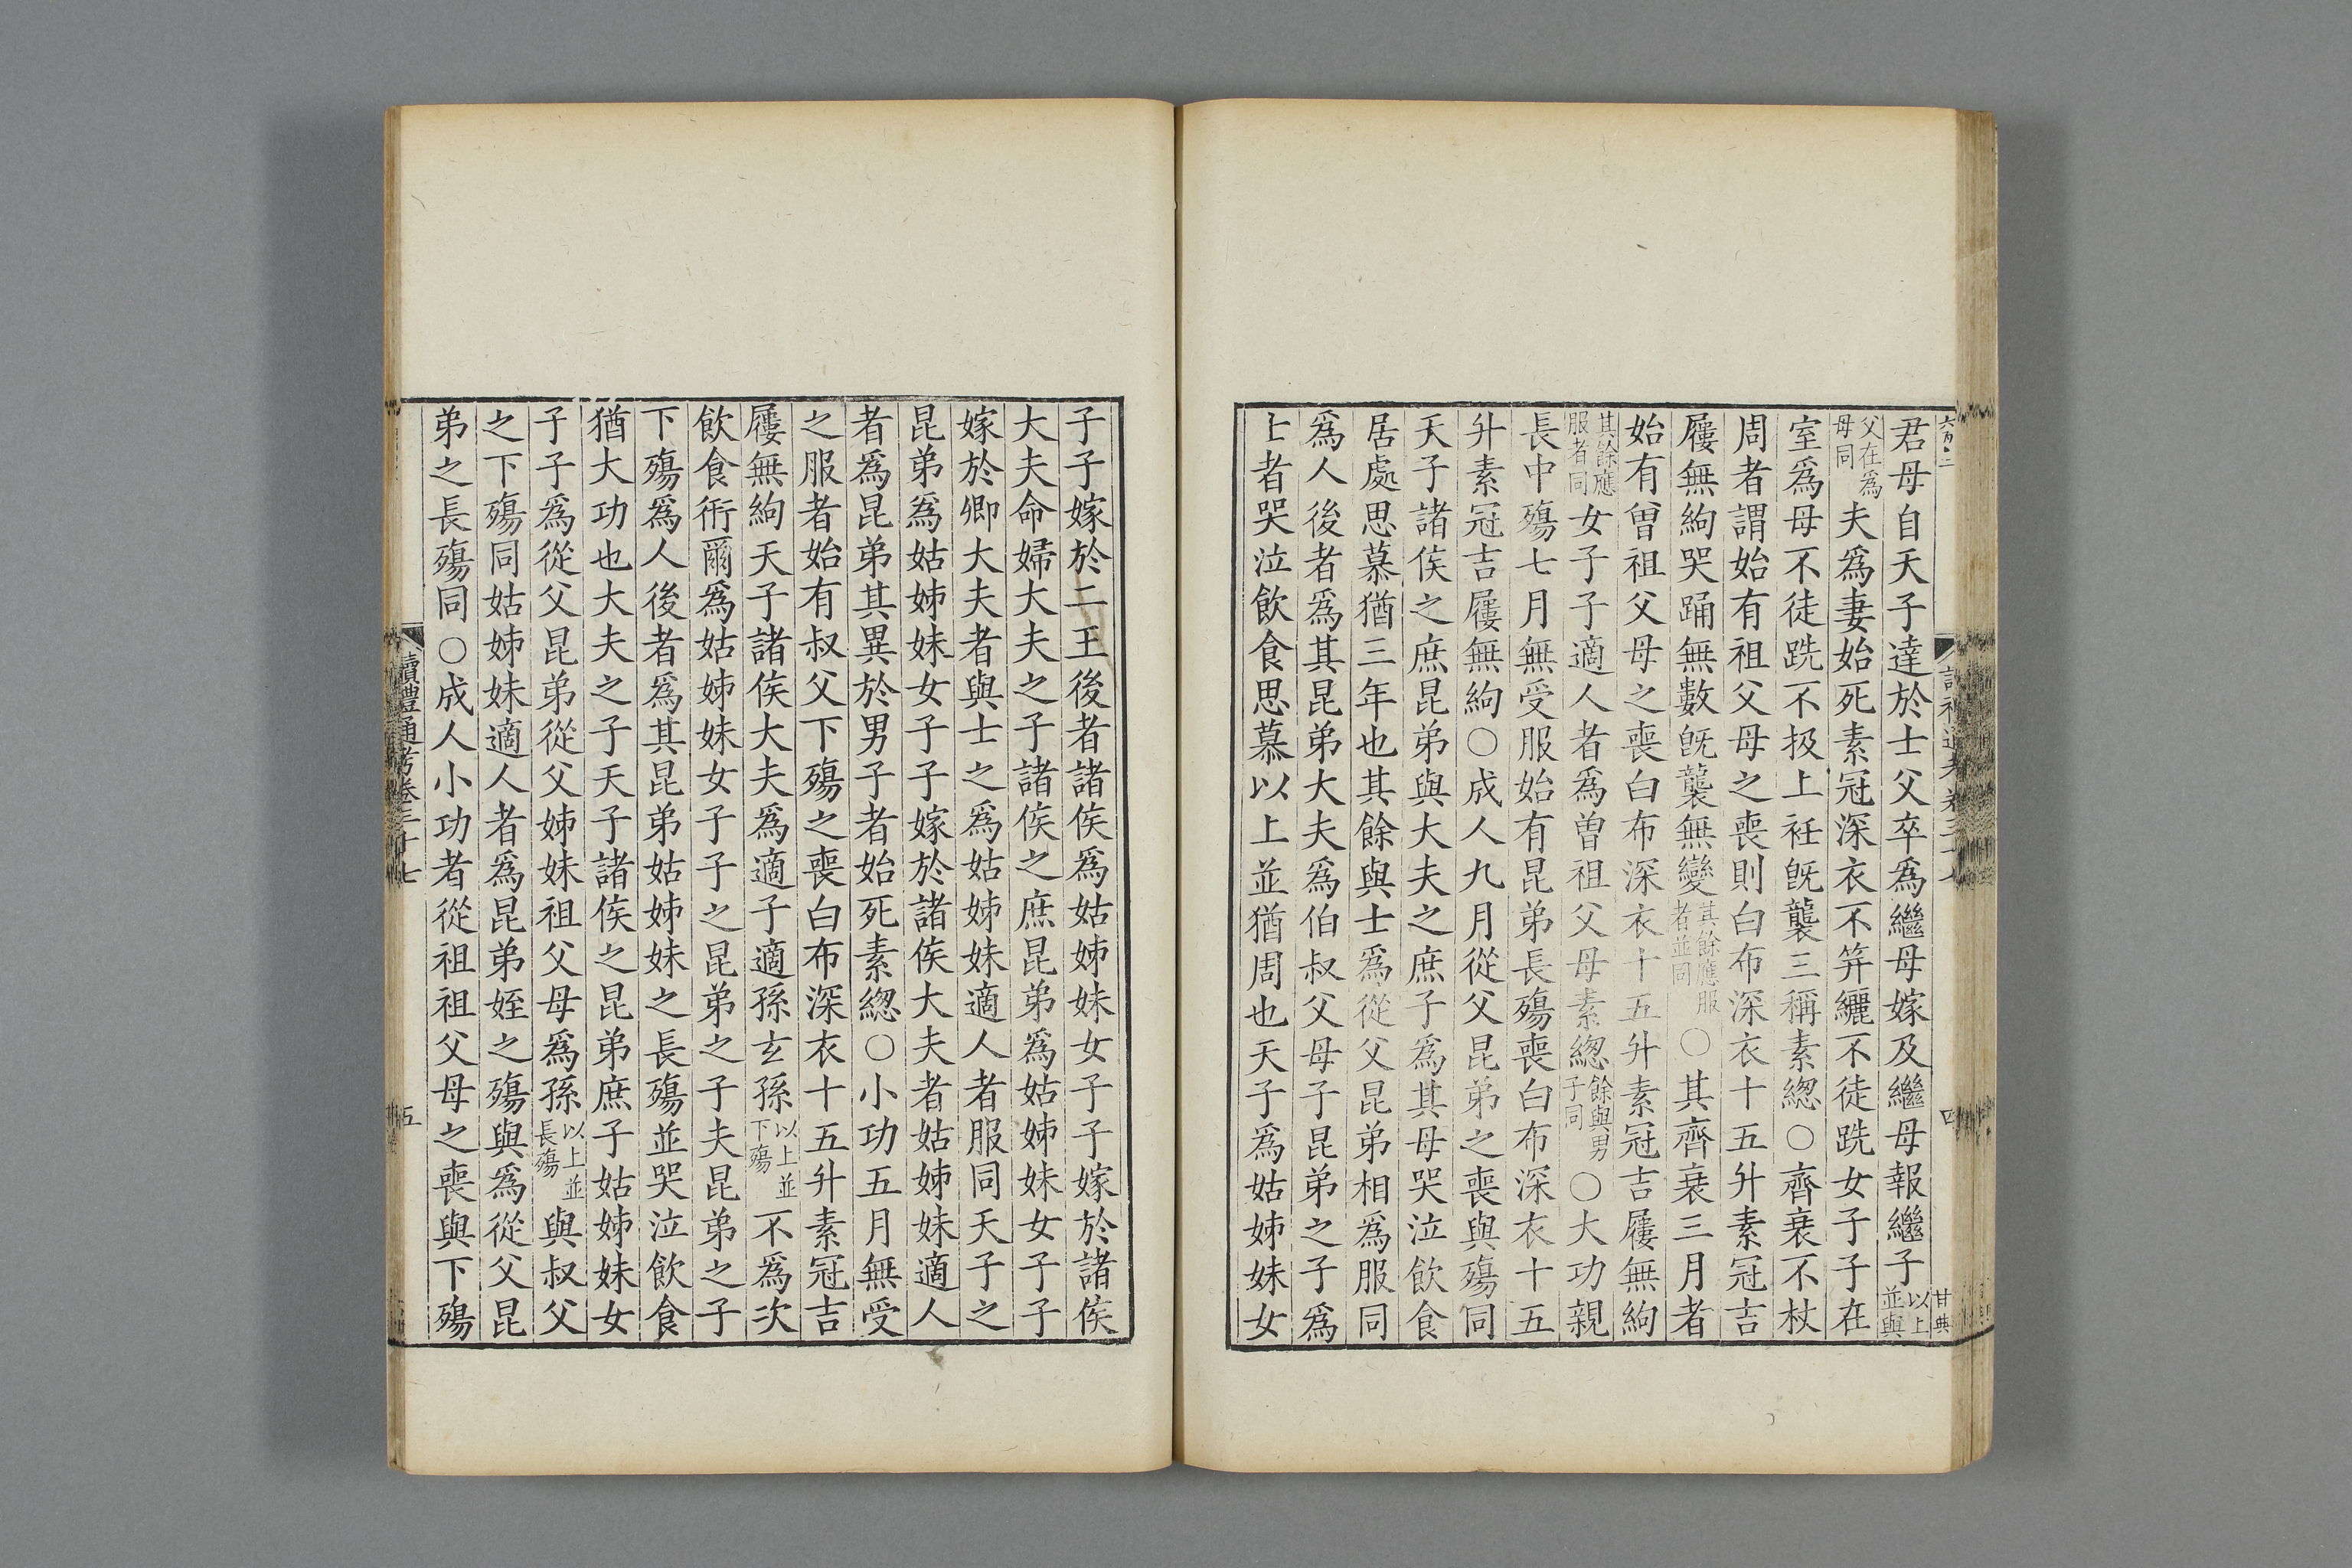 君母自天子達於士父卒爲繼母嫁及繼母報繼子以上並與
父在爲母同夫爲妻始死素冠深衣不笄纚不徒跣女子子在
室爲母不徒跣不扱上衽旣襲三稱素緦○齊衰不杖
周者謂始有祖父母之喪則白布深衣十五升素冠吉
屨無絇哭踊無數旣襲無變其餘應服者並同○其齊衰三月者
始有曾祖父母之喪白布深衣十五升素冠吉屨無絇
其餘應服者同女子子適人者爲曾祖父母素緦餘與男子同○大功親
長中殤七月無受服始有昆弟長殤喪白布深衣十五
升素冠吉屨無絇○成人九月從父昆弟之喪與殤同
天子諸侯之庶昆弟與大夫之庶子爲其母哭泣飲食
居處思慕猶三年也其餘與士爲從父昆弟相爲服同
爲人後者爲其昆弟大夫爲伯叔父母子昆弟之子爲
士者哭泣飲食思慕以上並猶周也天子爲姑姊妹女
子子嫁於二王後者諸侯爲姑姊妹女子子嫁於諸侯
大夫命婦大夫之子諸侯之庶昆弟爲姑姊妹女子子
嫁於卿大夫者與士之爲姑姊妹適人者服同天子之
昆弟爲姑姊妹女子子嫁於諸侯大夫者姑姊妹適人
者爲昆弟其異於男子者始死素緦○小功五月無受
之服者始有叔父下殤之喪白布深衣十五升素冠吉
屨無絇天子諸侯大夫爲適子適孫玄孫以上並下殤不爲次
飲食衎爾爲姑姊妹女子子之昆弟之子夫昆弟之子
下殤爲人後者爲其昆弟姑姊妹之長殤並哭泣飲食
猶大功也大夫之子天子諸侯之昆弟庶子姑姊妹女
子子爲從父昆弟從父姊妹祖父母爲孫以上並長殤與叔父
之下殤同姑姊妹適人者爲昆弟姪之殤與爲從父昆
弟之長殤同○成人小功者從祖祖父母之喪與下殤
讀禮通考卷三十七
五